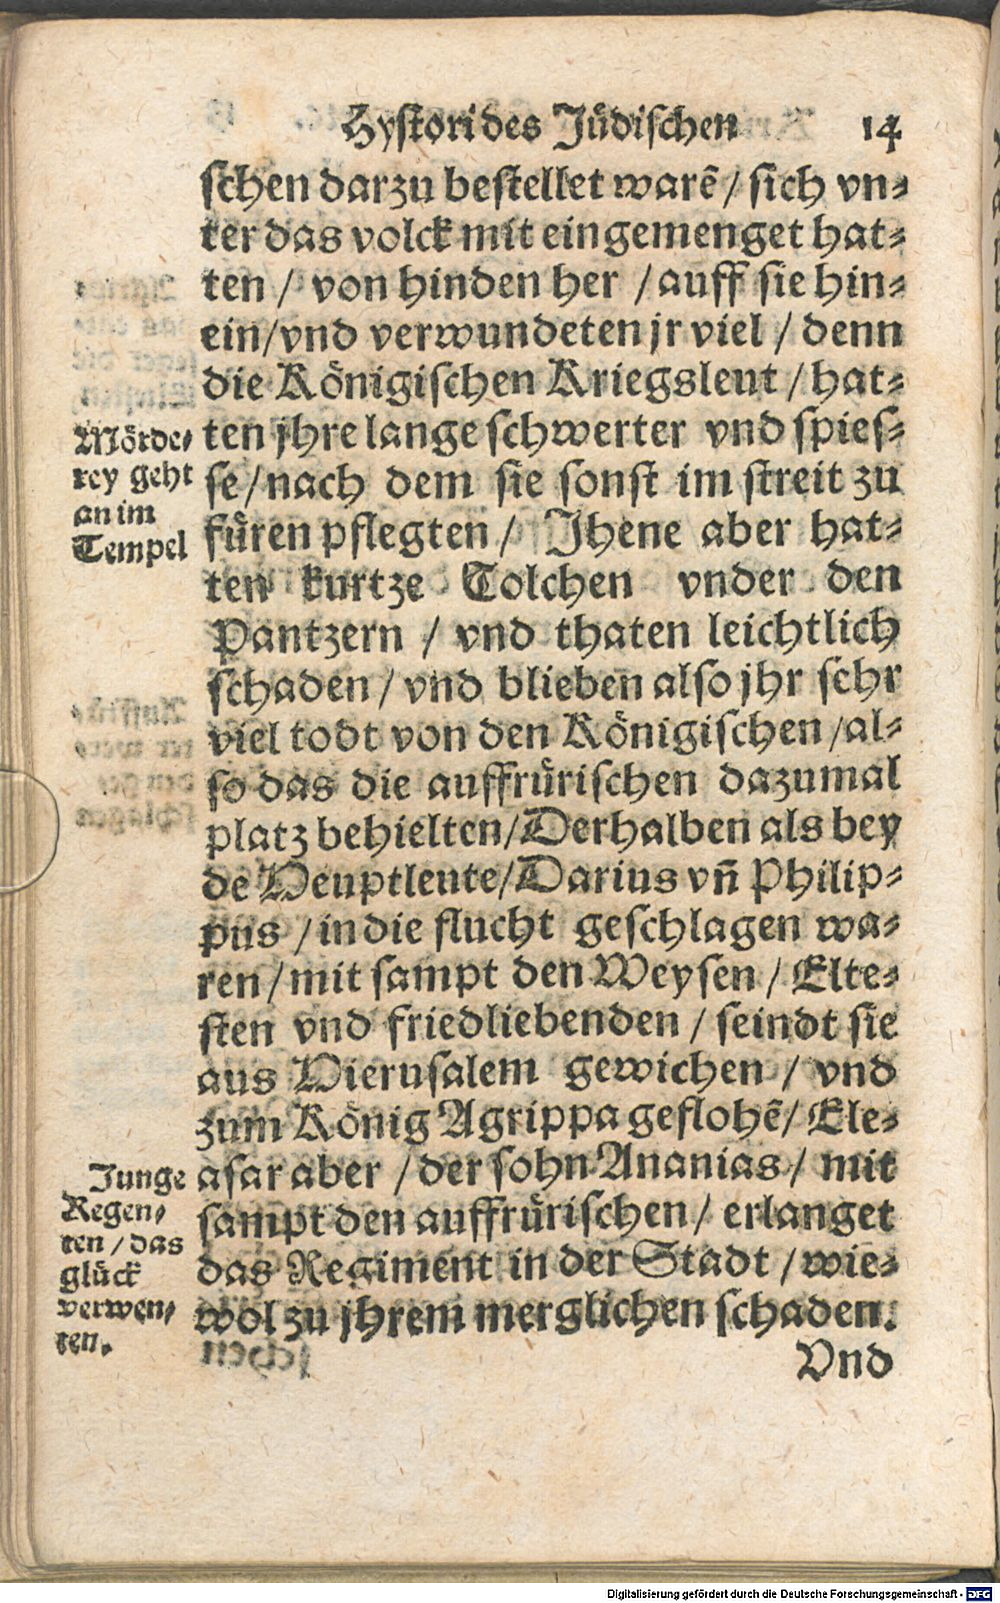 Hystori des Jüdischen 14
schen darzu bestellet warẽ / sich vn-
ter das volck mit eingemenget hat-
ten / von hinden her / auff sie hin-
ein / vnd verwundeten jr viel / denn
die Königischen Kriegsleut / hat-
ten jhre lange schwerter vnd spies-
se / nach dem sie sonst im streit zu
füren pflegten / Jhene aber hat-
ten kurtze Tolchen vnder den
Pantzern / vnd thaten leichtlich
schaden / vnd blieben also jhr sehr
viel todt von den Königischen / al-
so das die auffrürischen dazumal
platz behielten / Derhalben als bey
de Heuptleute / Darius vñ Philip-
pus / in die flucht geschlagen wa-
ren / mit sampt den Weysen / Elte-
sten vnd friedliebenden / seindt sie
aus Hierusalem gewichen / vnd
zum König Agrippa geflohẽ / Ele-
asar aber / der sohn Ananias / mit
sampt den auffrürischen / erlanget
das Regiment in der Stadt / wie-
wol zu jhrem merglichen schaden.
Vnd
Mörde-
rey geht
an im
Tempel
Junge
Regen-
ten / das
glück
verwen-
ten.
Digitalisierung gefördert durch die Deutsche Forschungsgemeinschaft - DFG